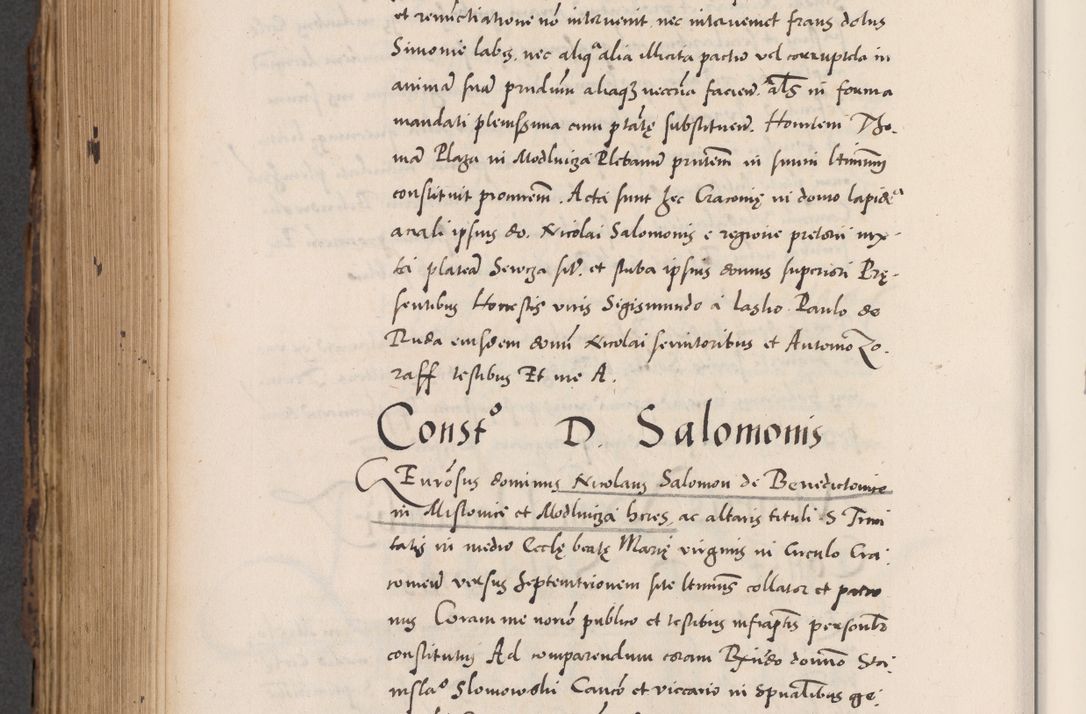 et renũctiatione nõ intervenit, nec interveniet fraus dolus
Simonie labes, nec aliqᵃ alia illicita pactio vel corruptela in
animã suã pñdium aliaqȝ neccña facieñ. aĺs in forma
mandati plenissima cum ptãtę substitueñ. Hoñlem Tho-
mã Plaza in Modlnizа Plebanũ pñtem̃ in simili ltimum̃
constituit procurem̃. Acta sunt hęc Cracovię in domo lapideᵃ
acali ipsius do. Nicolai Salomonis e regione pretorii iux-
ta plateã Sewcza sit̃. et stuba ipsius domus superiori Prę-
sentibus Honestis viris Sigismundo a Lasko Paulo de
Ruda eiusdem domĩ Nicolai servitoribus et Antonio Zo-
raff testibus Et me A.
Constᵒ D. Salomonis
GEnerõsus dominus Nicolaus Salomon de Benedictowice
in Mislowice et Modlniza heres, ac altaris tituli S Trini
tatis in medio Eccłę beatę Marię virginis in Circulo Cra-
covieñ versus septemtrionem site ltimus̃ collator et patro
nus Coram me norio publico et testibus infrapt̃is personłr
constitutus Ad comparendum coram Rxñdo domino Sta-
nislaᵒ Slomowski Canco et viccario in spũalibus ge-